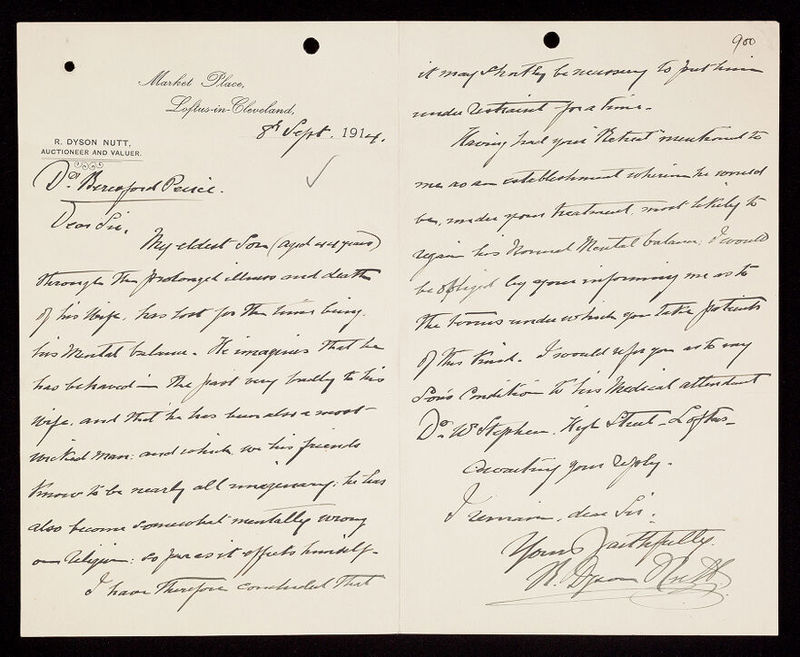 Market Place,
Loftus-in-Cleveland,
8th Sept. 1914.
R. DYSON NUTT,
AUCTIONEER AND VALUER.
Dr. Beresford Peirce.
Dear Sir,
My eldest Son (aged 44 years)
through the prolonged illness and death
of his Wife, has lost for the time being,
his Mental balance. He imagines that he
has behaved in the past very badly to his
Wife, and that he has been also a most
wicked man: and which we his friends
know to be nearly all imaginary; he has
also become somewhat mentally wrong
on Religion: so far as it affects himself.
I have therefore concluded that
900
it may shortly be necessary to put him
under restraint for a time.
Having had your "Retreat" mentioned to
me as an establishment wherein he would
be, under your treatment, most likely to
regain his Normal Mental balance; I would
be obliged by your informing me as to
the terms under which you take patients
of this kind. I would refer you as to my
Son's Condition to his Medical attendant
Dr. Wm Stephen, High Street, Loftus.
Awaiting your reply.
I remain, dear Sir.
Yours faithfully.
R. Dyson Nutt.